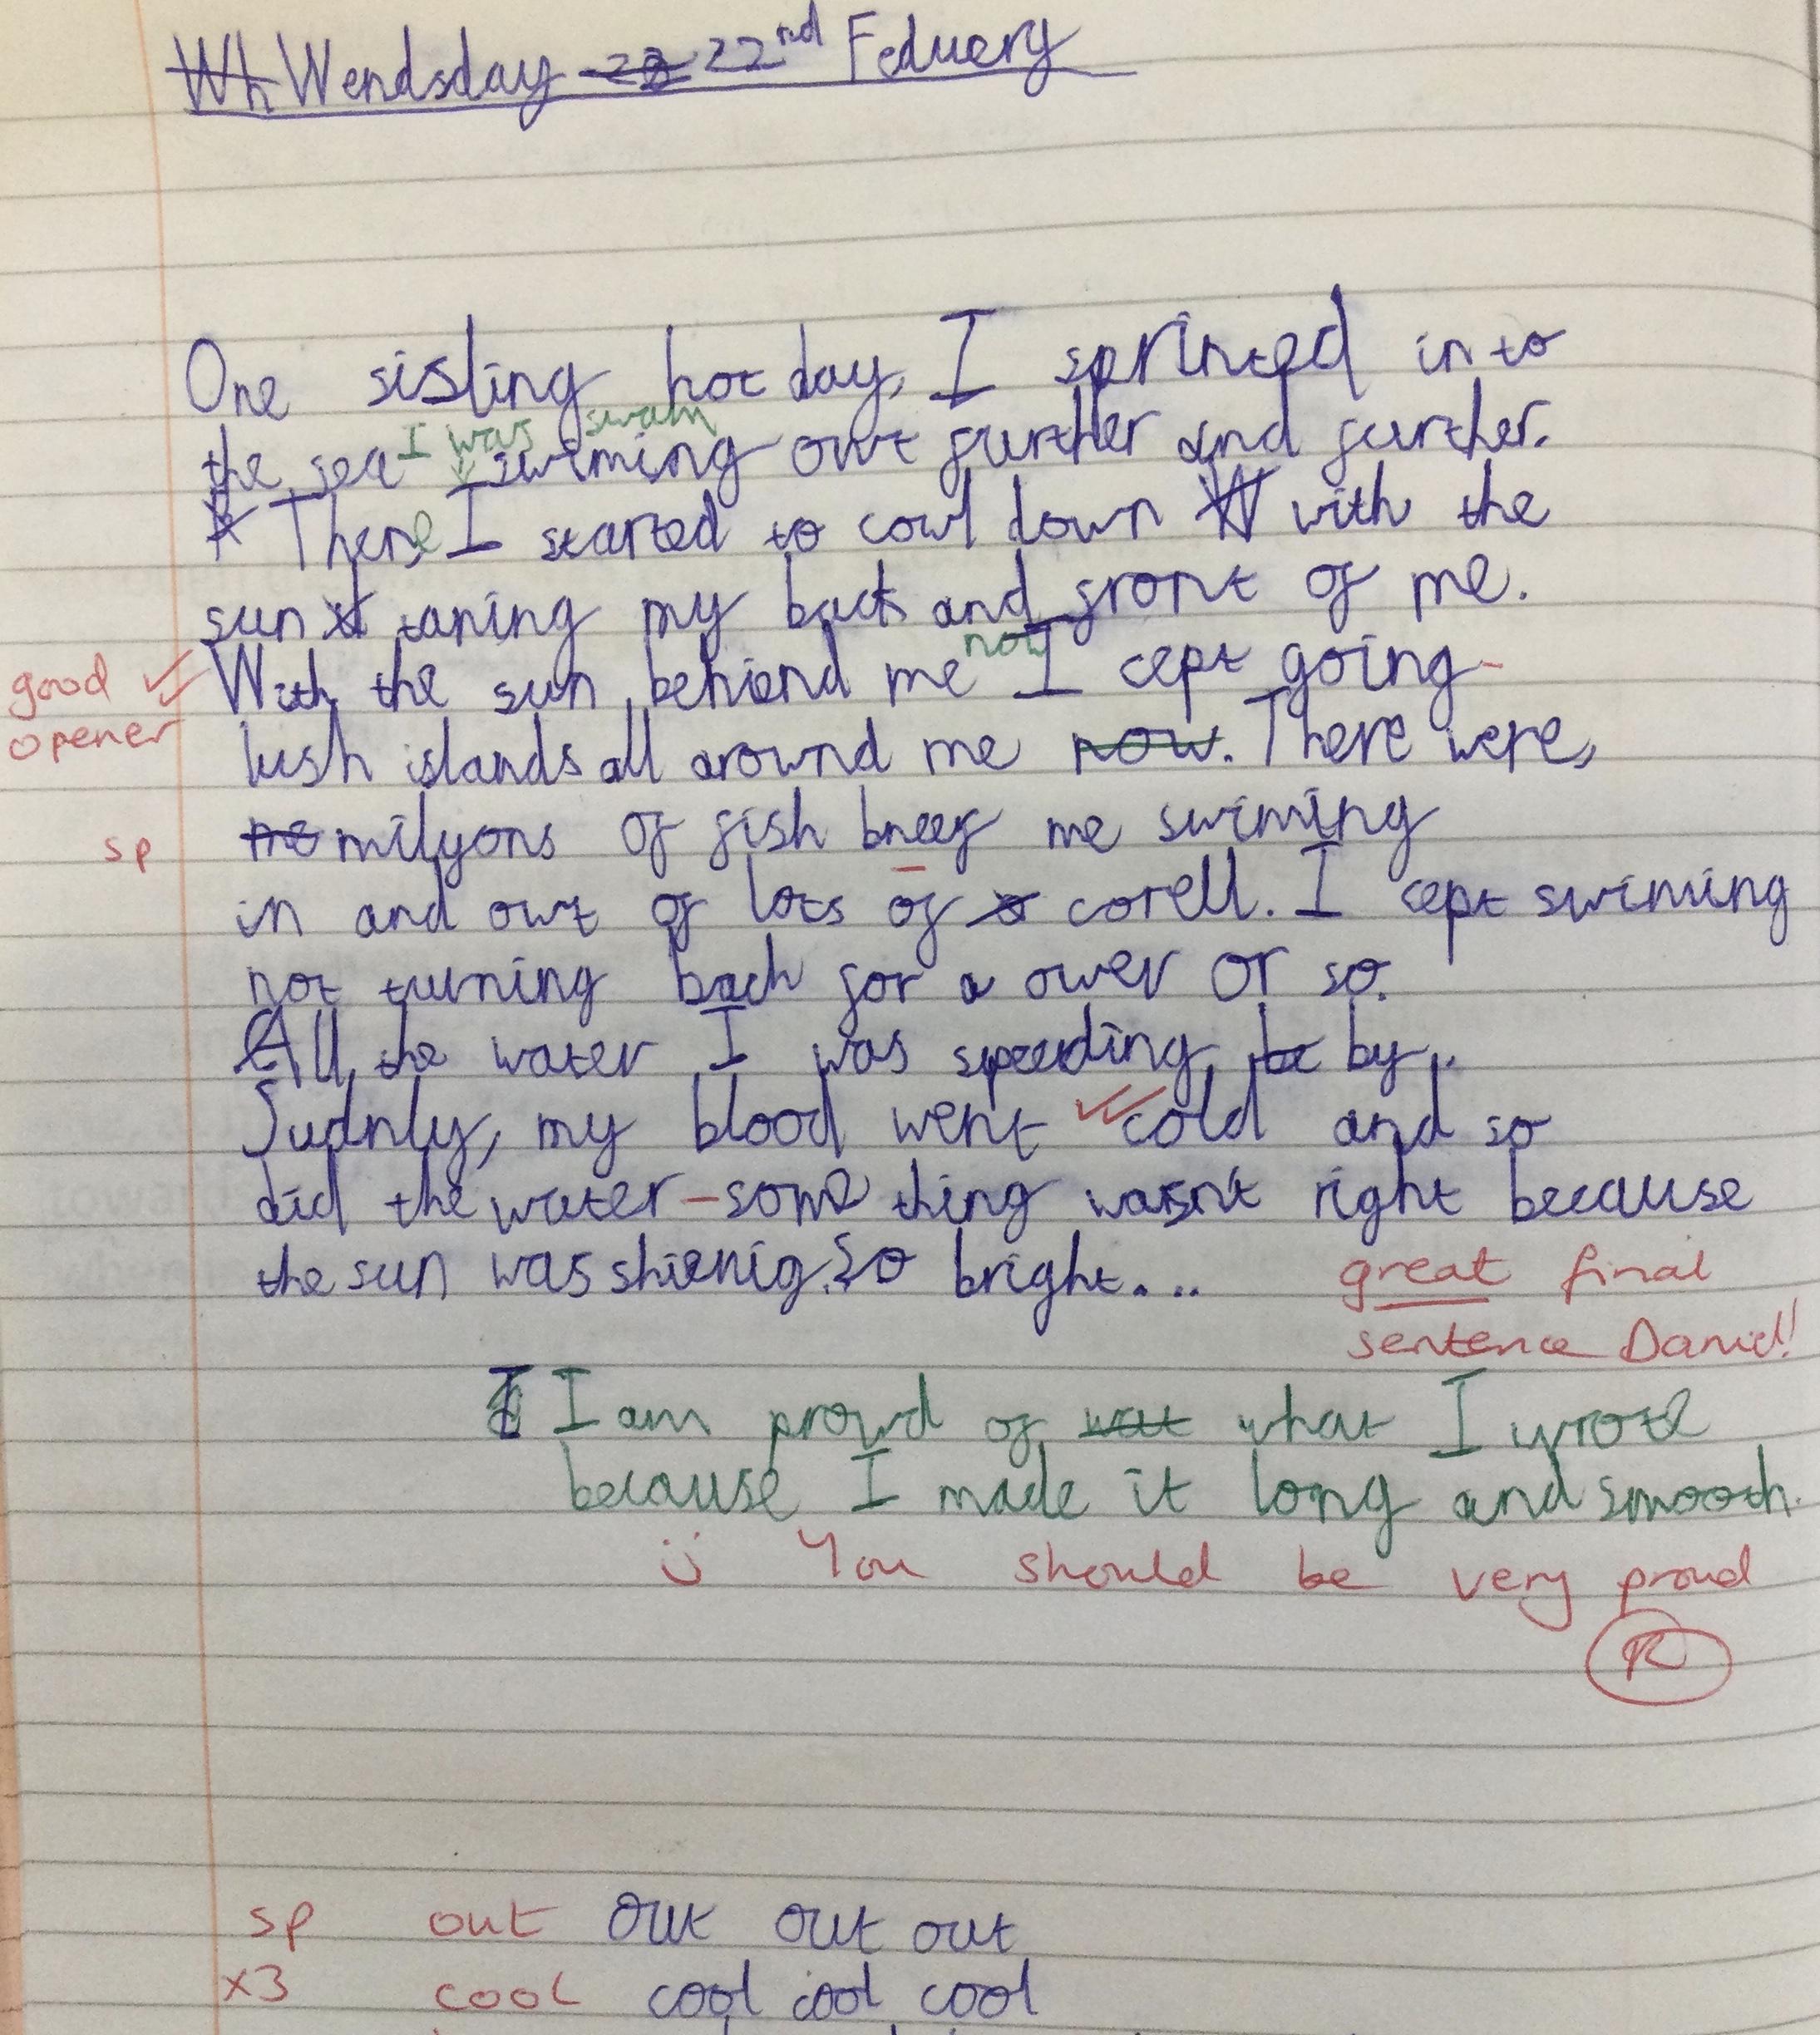 Wh Wendsday 23 22nd Feduery
One sisling hot day, I sprinted in to
I was swam
the sea swiming owt further and further.
There I started to cowl down W with the
sun taning my back and front of me.
now
good With the sun behiend me I cept going-
opener lush islands all around me now. There were,
sp me milyons of fish bneef me swiming
in and owt of lots of corell. I cept swiming
not turning back for a ower or so.
All the water I was speeding be by..
Sudnly, my blood went cold and so
did the water-some thing wasn't right because
the sun was shienig so bright...
great final
sentence Daniel!
I I am prowd of wat what I wrote
because I made it long and smooth.
You should be very proud
R
sp out out out out
x3 cool cool cool cool